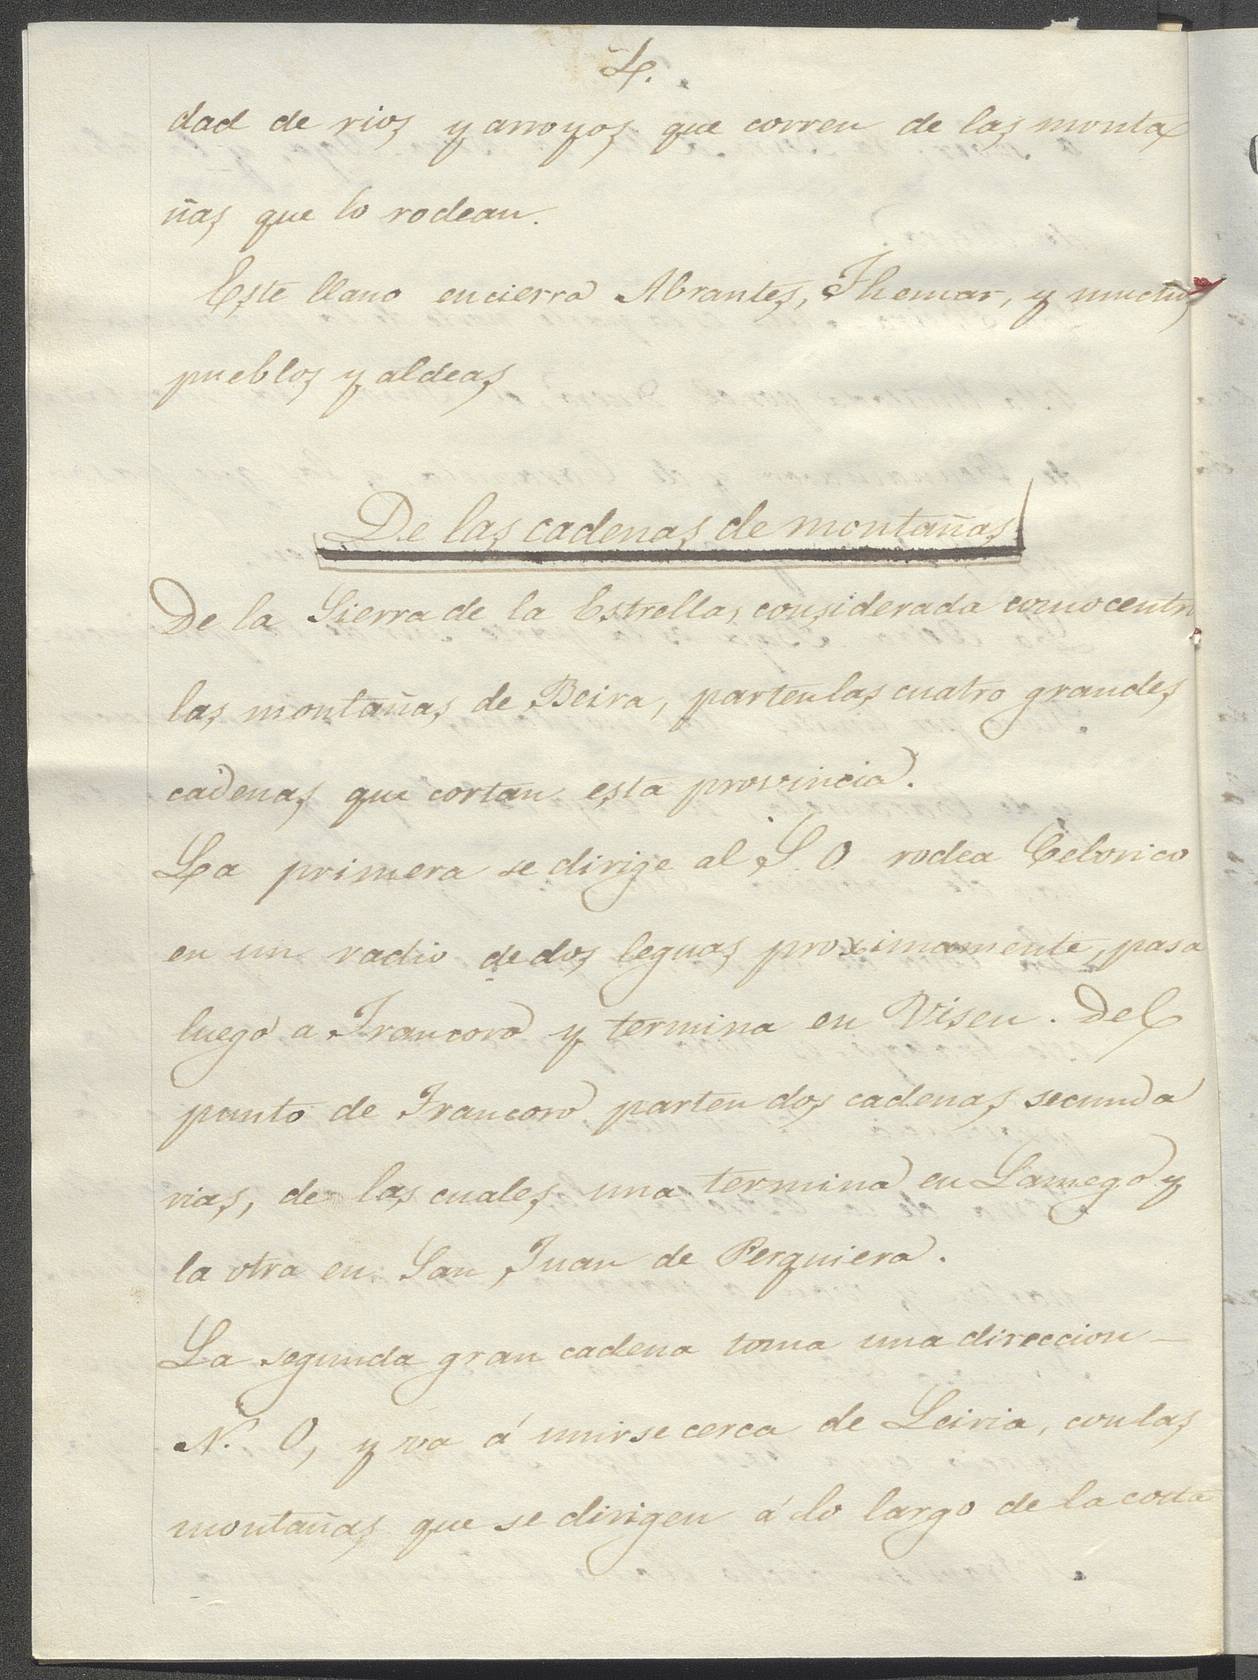 4.
dad de rios y arroyos que corren de las monta
ñas que lo rodean.
Este llano encierra Abrantes, Themar, y muchos
pueblos y aldeas
De las cadenas de montañas
De la Sierra de la Estrella, considerada como centro
las montañas de Beira, parten las cuatro grandes
cadenas que cortan esta provincia.
La primera se dirige al S. O. rodea Celorico
en un radio de dos leguas proximamente, pasa
luego a Francoro y termina en Viseu. Del
punto de Francoro parten dos cadenas secunda
rias, de las cuales una termina en Lamego y
la otra en San Juan de Perquiera.
La segunda gran cadena toma una direccion
N. O, y va á unirse cerca de Leiria, con las
montañas que se dirigen á lo largo de la costa